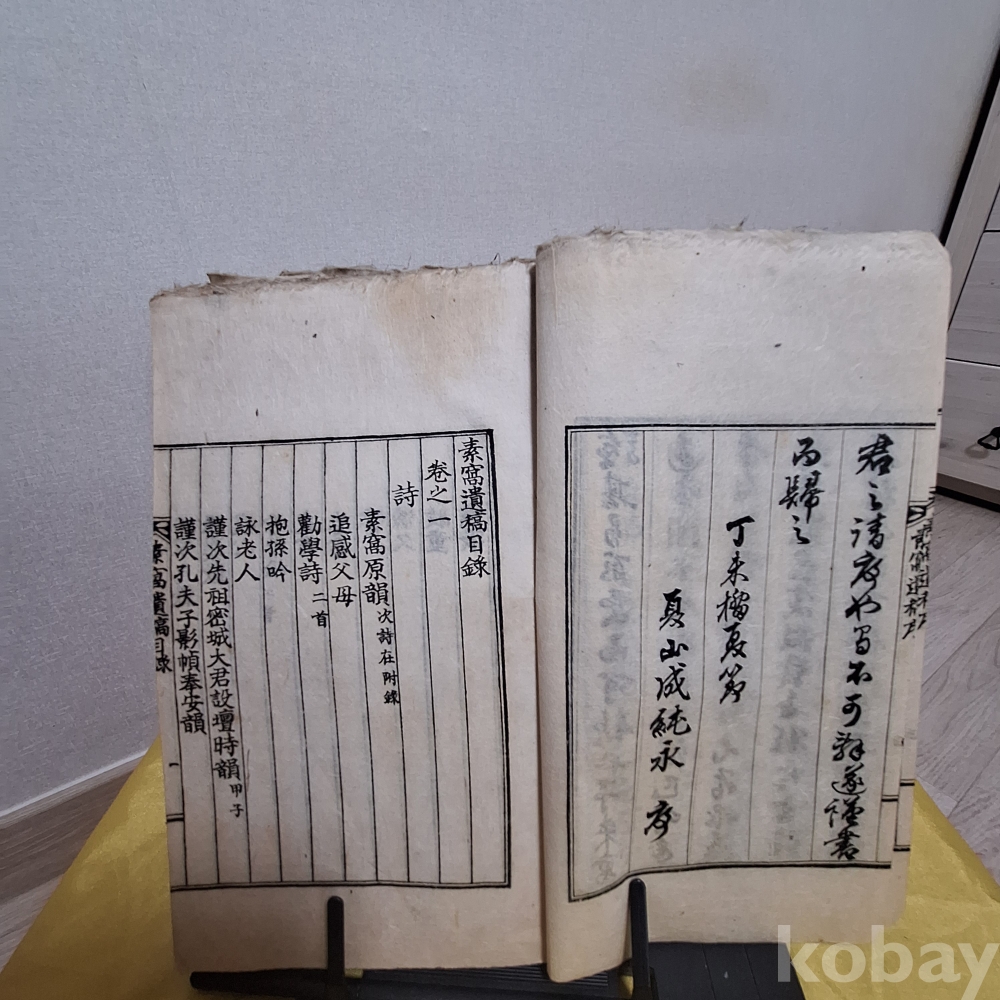 君之請序也曷不可辭遂謹書
而歸之
丁未榴夏節
夏山成純永 序
素窩遺稿目錄
卷之一
詩
素窩原韻 次詩在附錄
追感父母
勸學詩 二首
抱孫吟
詠老人
謹次先祖密城大君設壇時韻 甲子
謹次孔夫子影幀奉安韻
素窩遺稿目錄
一
kobay